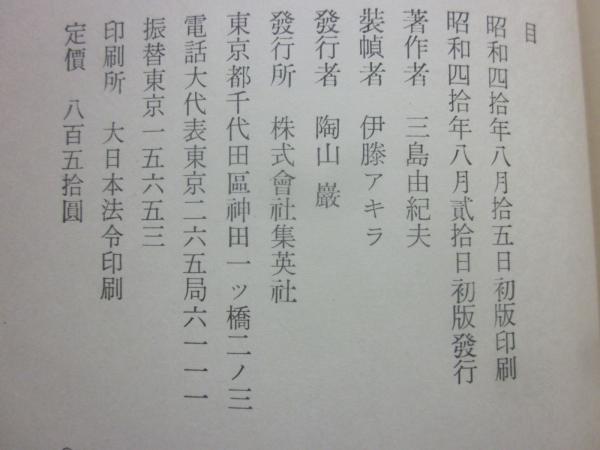 目
昭和四拾年八月拾五日初版印刷
昭和四拾年八月貳拾日初版發行
著作者 三島由紀夫
裝幀者 伊藤アキラ
發行者 陶山巖
發行所 株式會社集英社
東京都千代田區神田一ッ橋二ノ三
電話大代表東京二六五局六一一一
振替東京一五六五三
印刷所 大日本法令印刷
定價 八百五拾圓